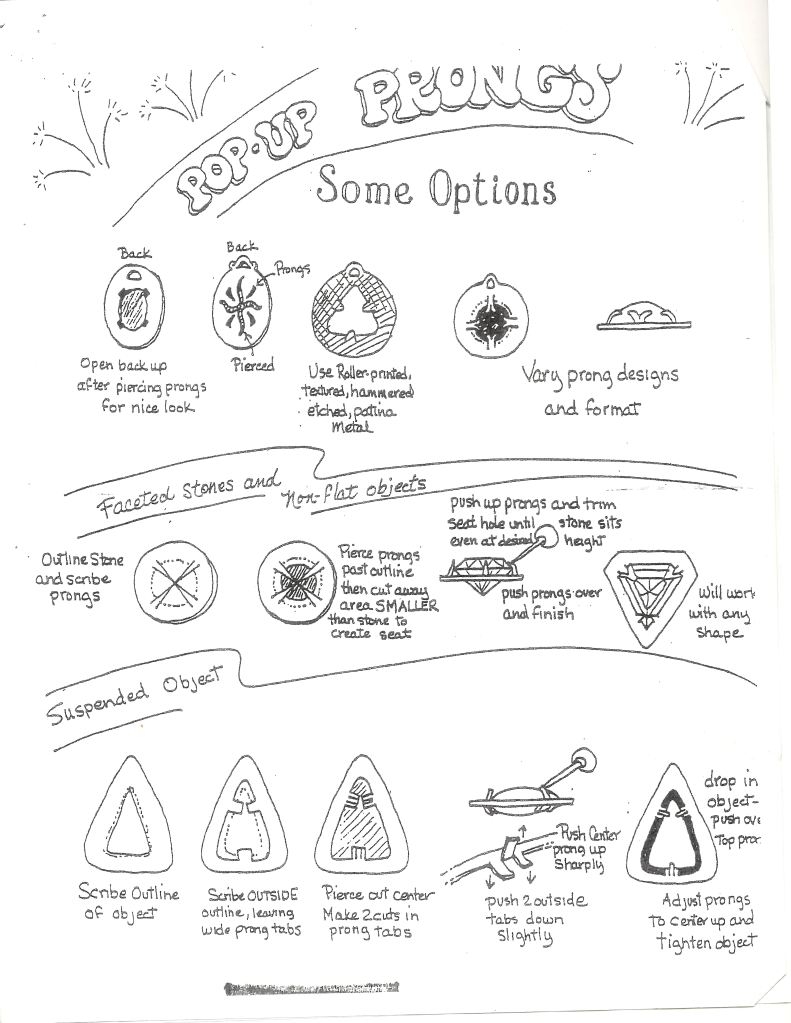 POP-UP PRONGS
Some Options
Back
Back
Prongs
Pierced
Open back up
after piercing prongs
for nice look
Use Roller-printed,
textured, hammered
etched, patina
Metal
Vary prong designs
and format
Faceted Stones and
Non-flat objects
Outline Stone
and scribe
prongs
Pierce prongs
past outline
then cut away
area SMALLER
than stone to
create seat
push up prongs and trim
seat hole until stone sits
even at desired height
push prongs over
and finish
Will work
with any
shape
Suspended Object
Scribe Outline
of object
Scribe OUTSIDE
outline, leaving
wide prong tabs
Pierce out center
Make 2 cuts in
prong tabs
Push Center
prong up
Sharply
push 2 outside
tabs down
Slightly
drop in
object-
push ove
Top pron
Adjust prongs
to center up and
tighten object